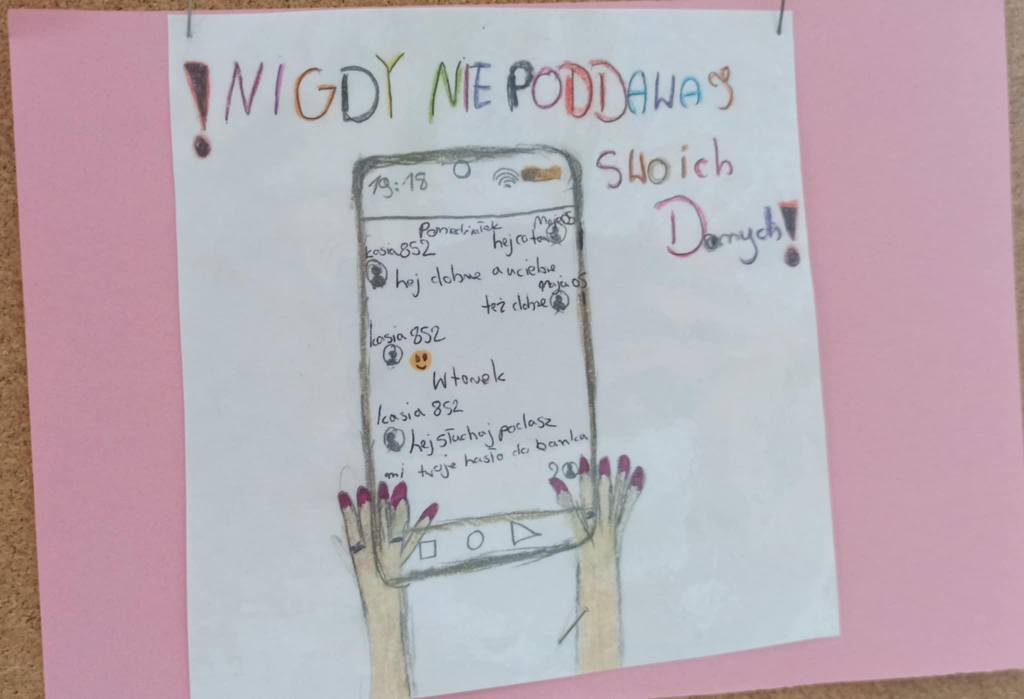 ! NIGDY NIE PODDAWAJ
SWOICH
Danych!
19:18
Poniedziałek
Maja05
hej co tam
kasia852
hej dobrze a u ciebie
Maja05
też dobrze
kasia 852
Wtorek
kasia 852
hej słuchaj podasz
mi twoje hasło do banku
?